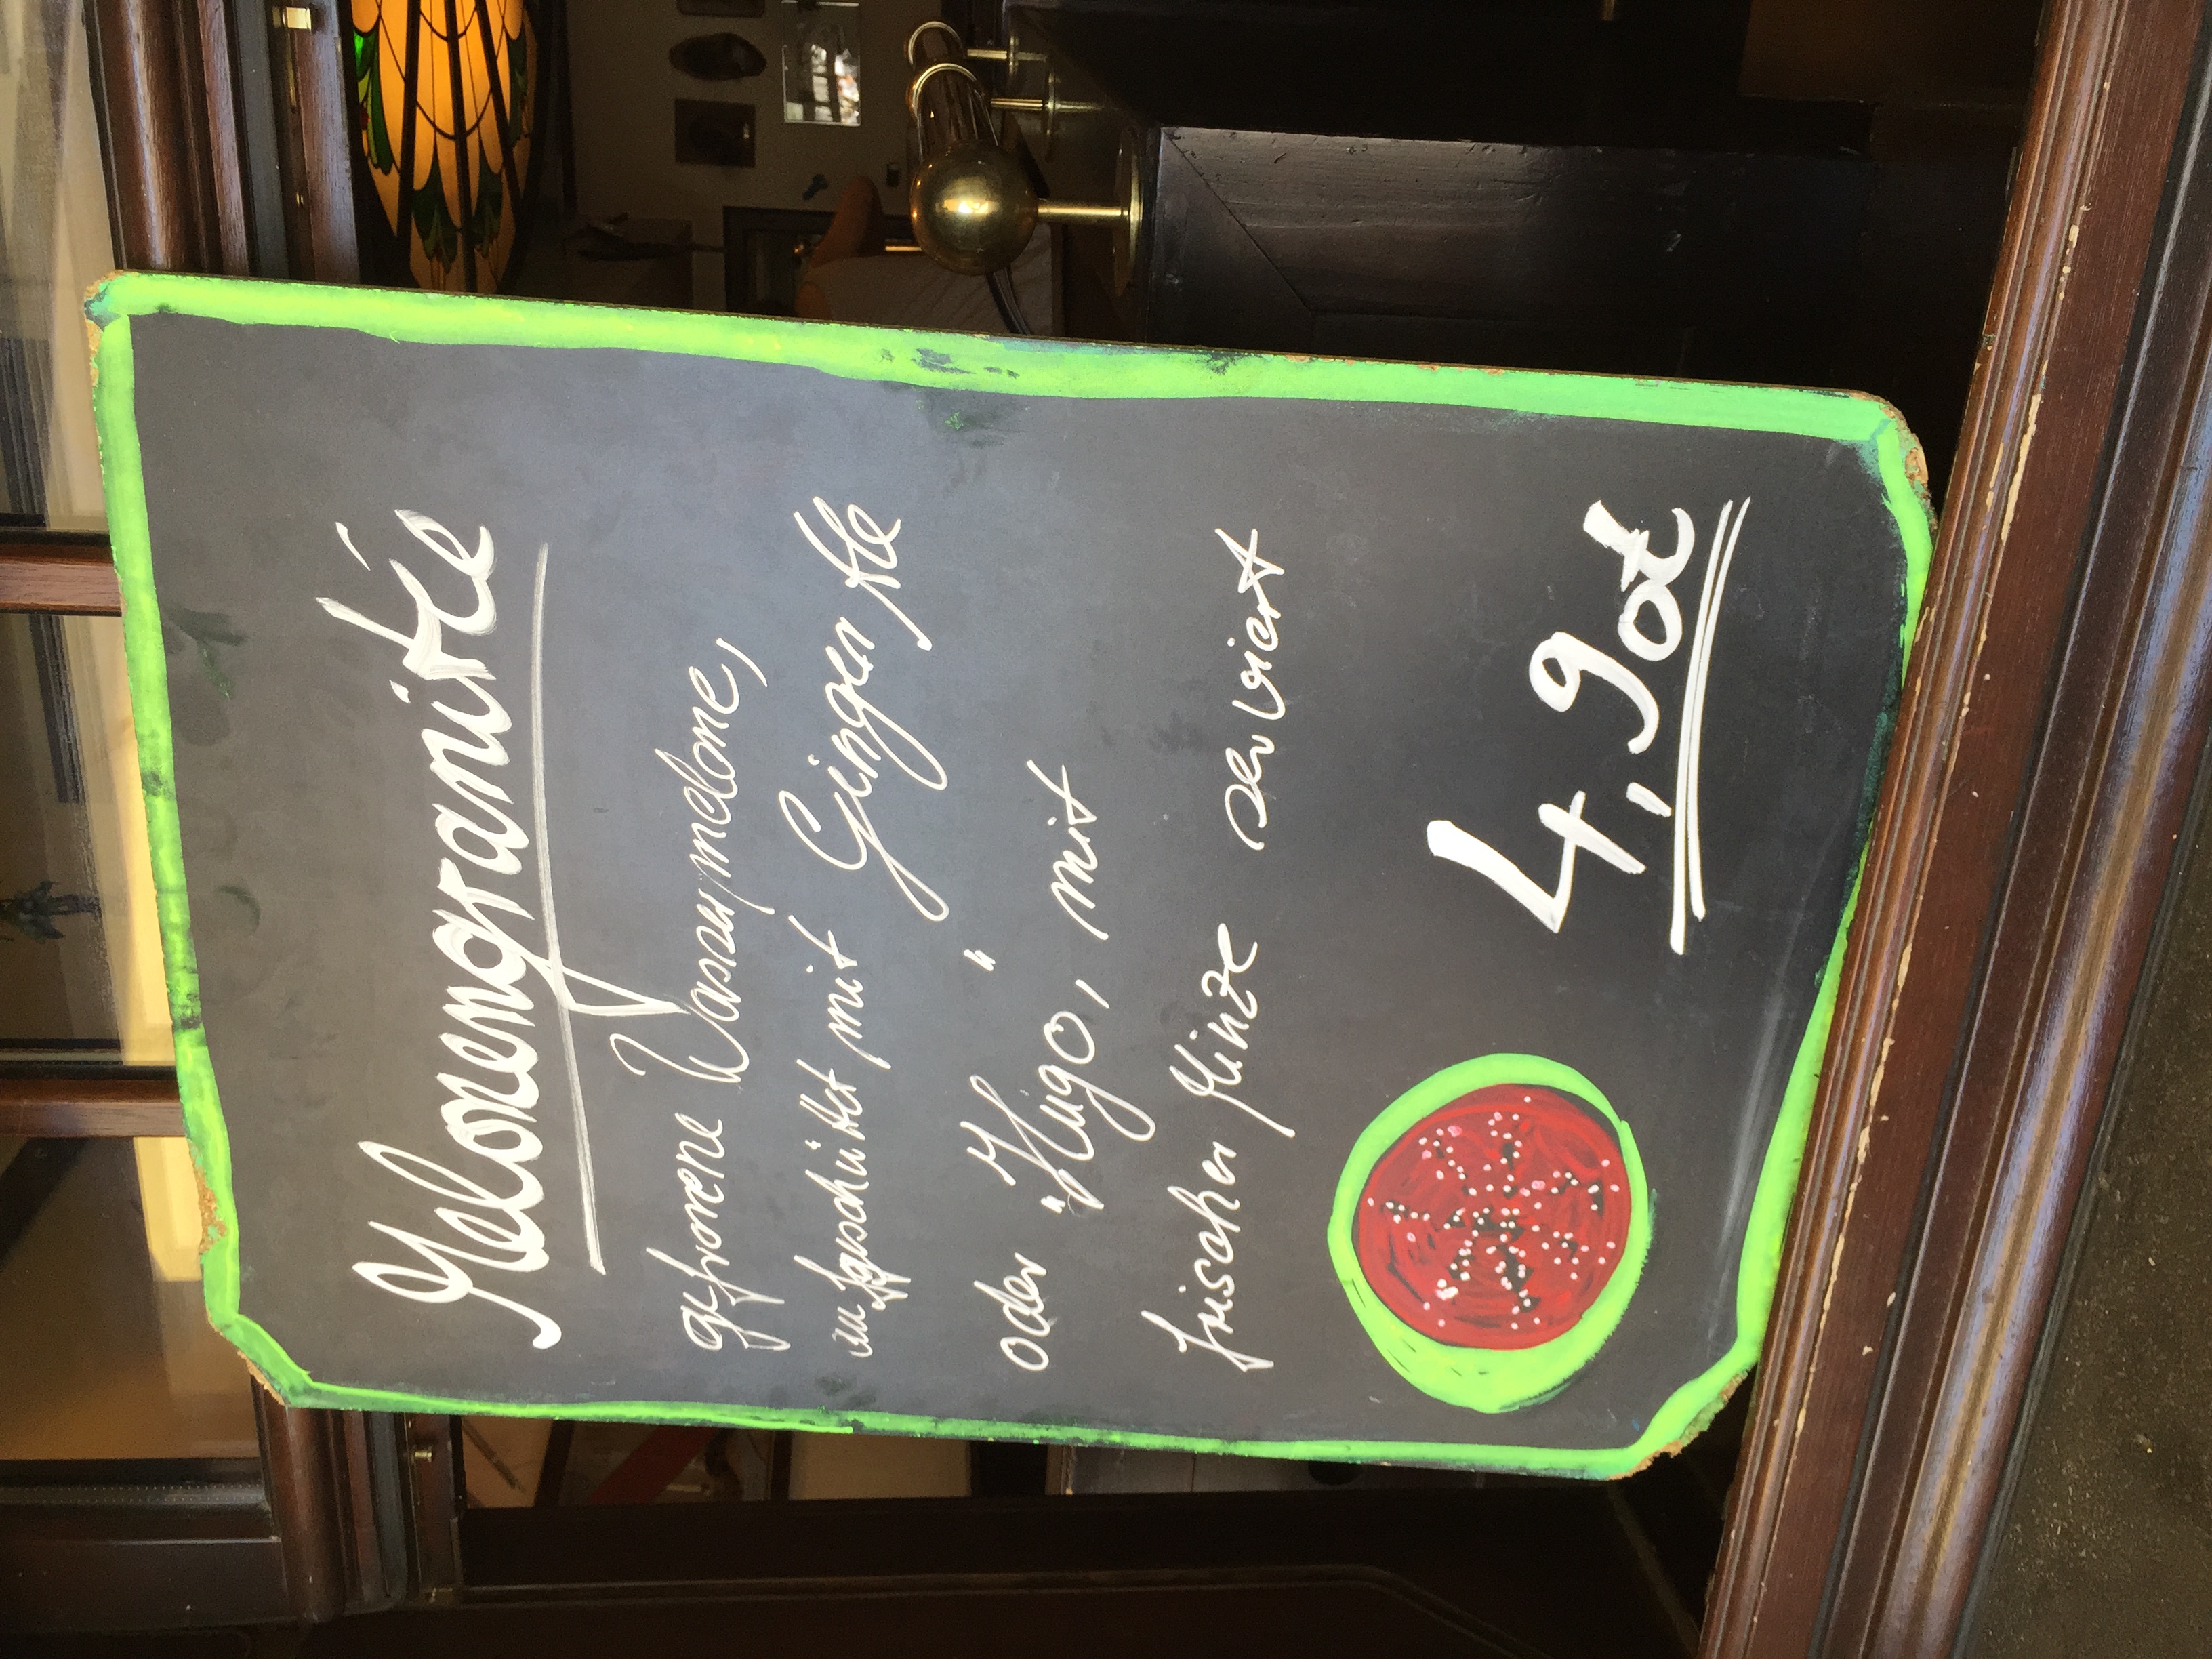 Melonengranité
gefrorene Wassermelone,
aufgeschüttet mit Ginger Ale
oder "Hugo", mit
frischer Minze serviert
4,90€